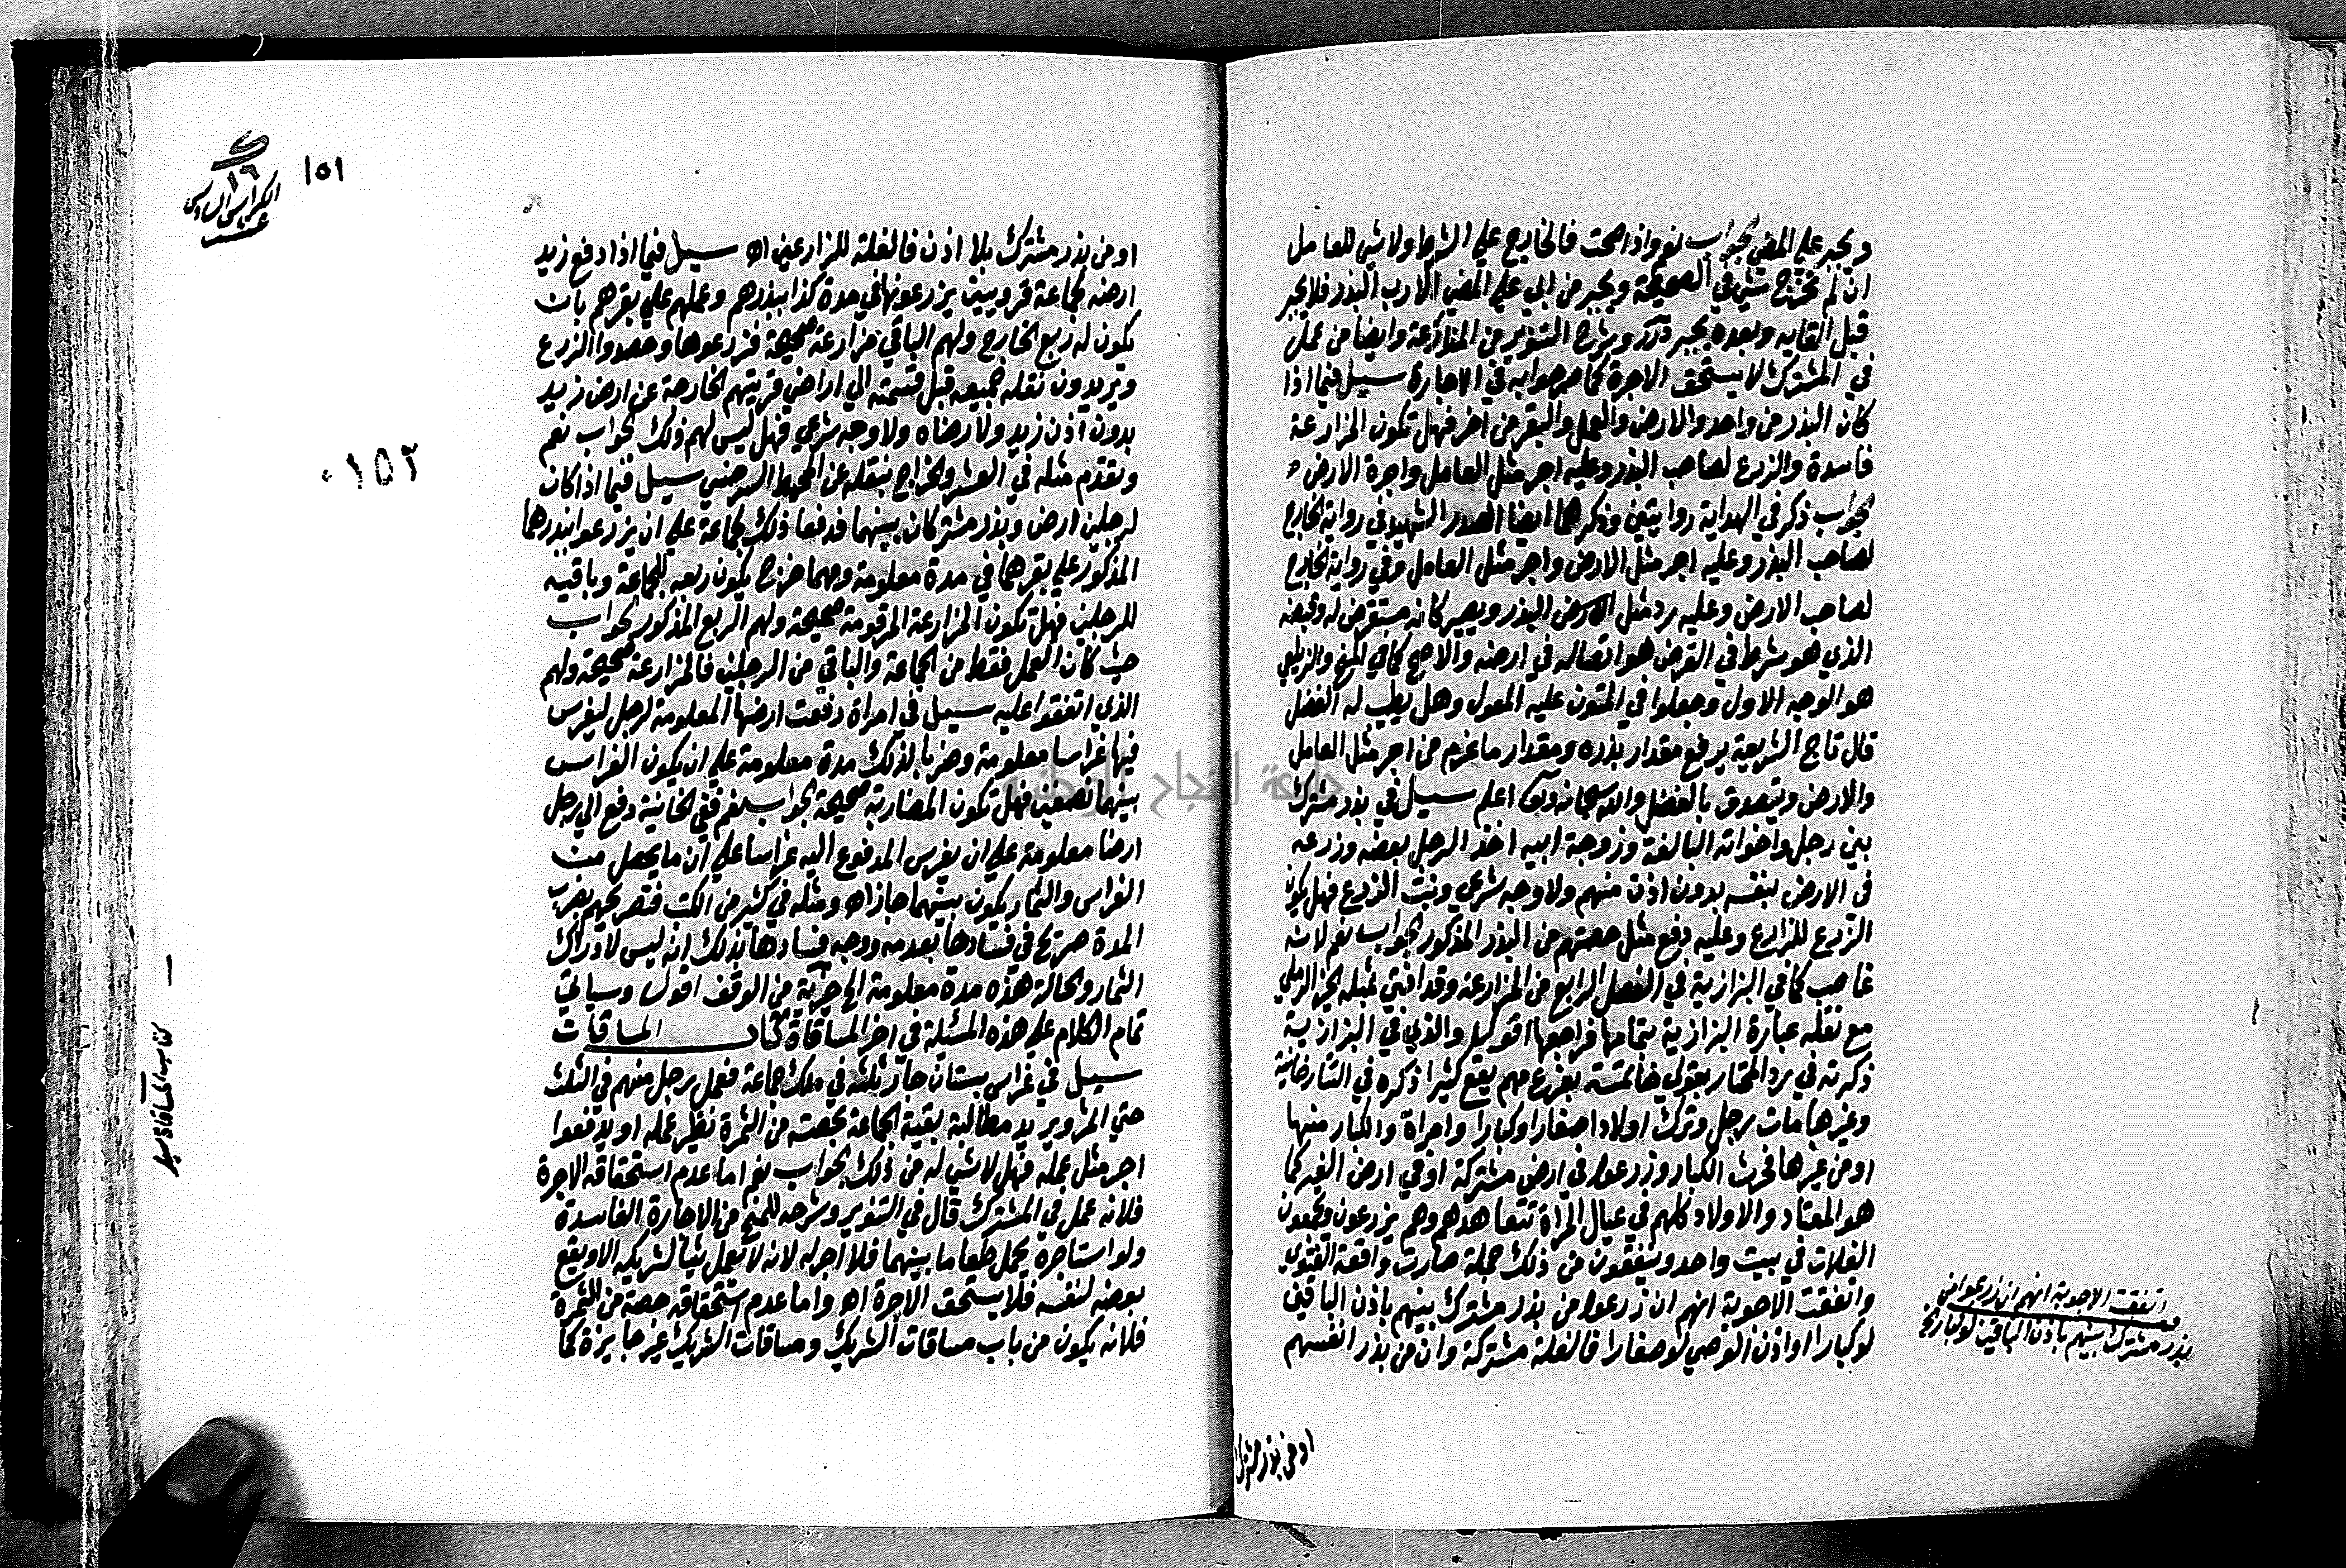 ويجبر على المضي الجواب نعم واذا صحت فالخارج على الشرط ولا شي للعامل
ان لم يخرج شي في الصحيحة ويجبر من ابى على المضي الا رب البذر فلا يجبر
قبل القايه وبعده يجبر درر وشرح التنوير من المزارعة وايضا من عمل
في المشترك لا يستحق الاجرة كما صرحوا به في الاجارة سيل فيما اذا
كان البذر من واحد والارض والعمل والبقر من اخر فهل تكون المزارعة
فاسدة والزرع لصاحب البذر وعليه اجر مثل العامل واجرة الارض
الجواب ذكر في الهداية روايتين وذكرهما ايضا الصدر الشهيد في رواية الخارج
لصاحب البذر وعليه اجر مثل الارض واجر مثل العامل وفي رواية الخارج
لصاحب الارض وعليه رد مثل البذر ويصير كانه مستقرض له وقبضه
الذي هو شرط في القرض هو اتصاله في ارضه والاصح كما في المنح والزيلعي
هو الوجه الاول وجعلوا في المتون عليه المعول وهل يطيب له الفضل
قال تاج الشريعة يرفع مقدار بذره ومقدار ما غرم من اجر مثل العامل
والارض ويتصدق بالفضل والله سبحانه وتعالى اعلم سيل في بذر مشترك
بين رجل واخواته البالغة وزوجة ابيه اخذ الرجل بعضه وزرعه
في الارض بنفسه بدون اذن منهم ولا وجه شرعي ونبت الزرع فهل يكون
الزرع للزارع وعليه دفع مثل حصتهم من البذر المذكور الجواب نعم لانه
غاصب كما في البزازية في الفصل الرابع من المزارعة وقد افتى بمثله الخير الرملي
مع نقله عبارة البزازية بتمامها فراجعها اقول والذي في البزازية
ذكرته في رد المحتار بقولي خاتمة بفرع مهم يقع كثيرا ذكره في التتارخانية
وغيرها مات رجل وترك اولادا صغارا وكبارا وامراة والكبار منها
او من غيرها فحرث الكبار وزرعوا في ارض مشتركة او في ارض الغير كما
هو المعتاد والاولاد كلهم في عيال المراة تتعاهدهم وهم يزرعون ويجمعون
الغلات في بيت واحد وينفقون من ذلك جملة صارت واقعة الفتوى
واتفقت الاجوبة انهم ان زرعوا من بذر مشترك بينهم باذن الباقين
لو كبارا او اذن الوصي لو صغارا فالغلة مشتركة وان من بذر انفسهم
اتفقت الاجوبة انهم ان زرعوا من
بذر مشترك بينهم باذن الباقين لو كبارا الخ
او من بذر مشترك
١٥١
١٦
الكراس السادس
عشر
١٥٢
او من بذر مشترك بلا اذن فالغلة للمزارعين اه سيل فيما اذا دفع زيد
ارضه لجماعة قرويين يزرعونها في مدة كذا ببذرهم وعملهم على بقرهم بان
يكون له ربع الخارج ولهم الباقي مزارعة صحيحة فزرعوها وحصدوا الزرع
ويريدون نقله جميعه قبل قسمته الى اراضي قريتهم الخارجة عن ارض زيد
بدون اذن زيد ولا رضاه ولا وجه شرعي فهل ليس لهم ذلك الجواب نعم
وتقدم مثله في العشر والخراج بنقله عن المحيط السرخسي سيل فيما اذا كان
لرجلين ارض وبذر مشتركان بينهما فدفعا ذلك لجماعة على ان يزرعوا بذرهما
المذكور على بقرهما في مدة معلومة ومهما خرج يكون ربعه للجماعة وباقيه
للرجلين فهل تكون المزارعة المرقومة صحيحة ولهم الربع المذكور الجواب
حيث كان العمل فقط من الجماعة والباقي من الرجلين فالمزارعة صحيحة ولهم
الذي اتفقوا عليه سيل في امراة دفعت ارضها المعلومة لرجل ليغرس
فيها غراسا معلومة وضربا لذلك مدة معلومة على ان يكون الغراس
بينهما نصفين فهل تكون المضاربة صحيحة الجواب نعم ففي الخانية دفع الى رجل
ارضا معلومة على ان يغرس المدفوع اليه غراسا على ان ما يحصل من
الغراس والثمار يكون بينهما جاز اه ومثله في كثير من الكتب فتصريحهم بضرب
المدة صريح في فسادها بعدمه ووجه فسادها بذلك انه ليس لادراك
الثمار والحالة هذه مدة معلومة الخ خيرية من الوقف اقول وسياتي
تمام الكلام على هذه المسئلة في اخر المساقاة كتاب المساقات
سيل في غراس بستان جار ثلثه في ملك جماعة فعمل رجل منهم في الثلث
حتى اثمر ويريد مطالبة بقية الجماعة بحصته من الثمرة نظير عمله او يدفعوا
اجر مثل عمله فهل لا شي له من ذلك الجواب نعم اما عدم استحقاقه الاجرة
فلانه عمل في المشترك قال في التنوير وشرحه للمنح من الاجارة الفاسدة
ولو استاجره لحمل طعام بينهما فلا اجر له لانه لا يعمل شيأ لشريكه الا ويقع
بعضه لنفسه فلا يستحق الاجرة اه واما عدم استحقاقه حصة من الثمرة
فلانه يكون من باب مساقات الشريك ومساقات الشريك غير جايزة كما
كتاب المساقاة